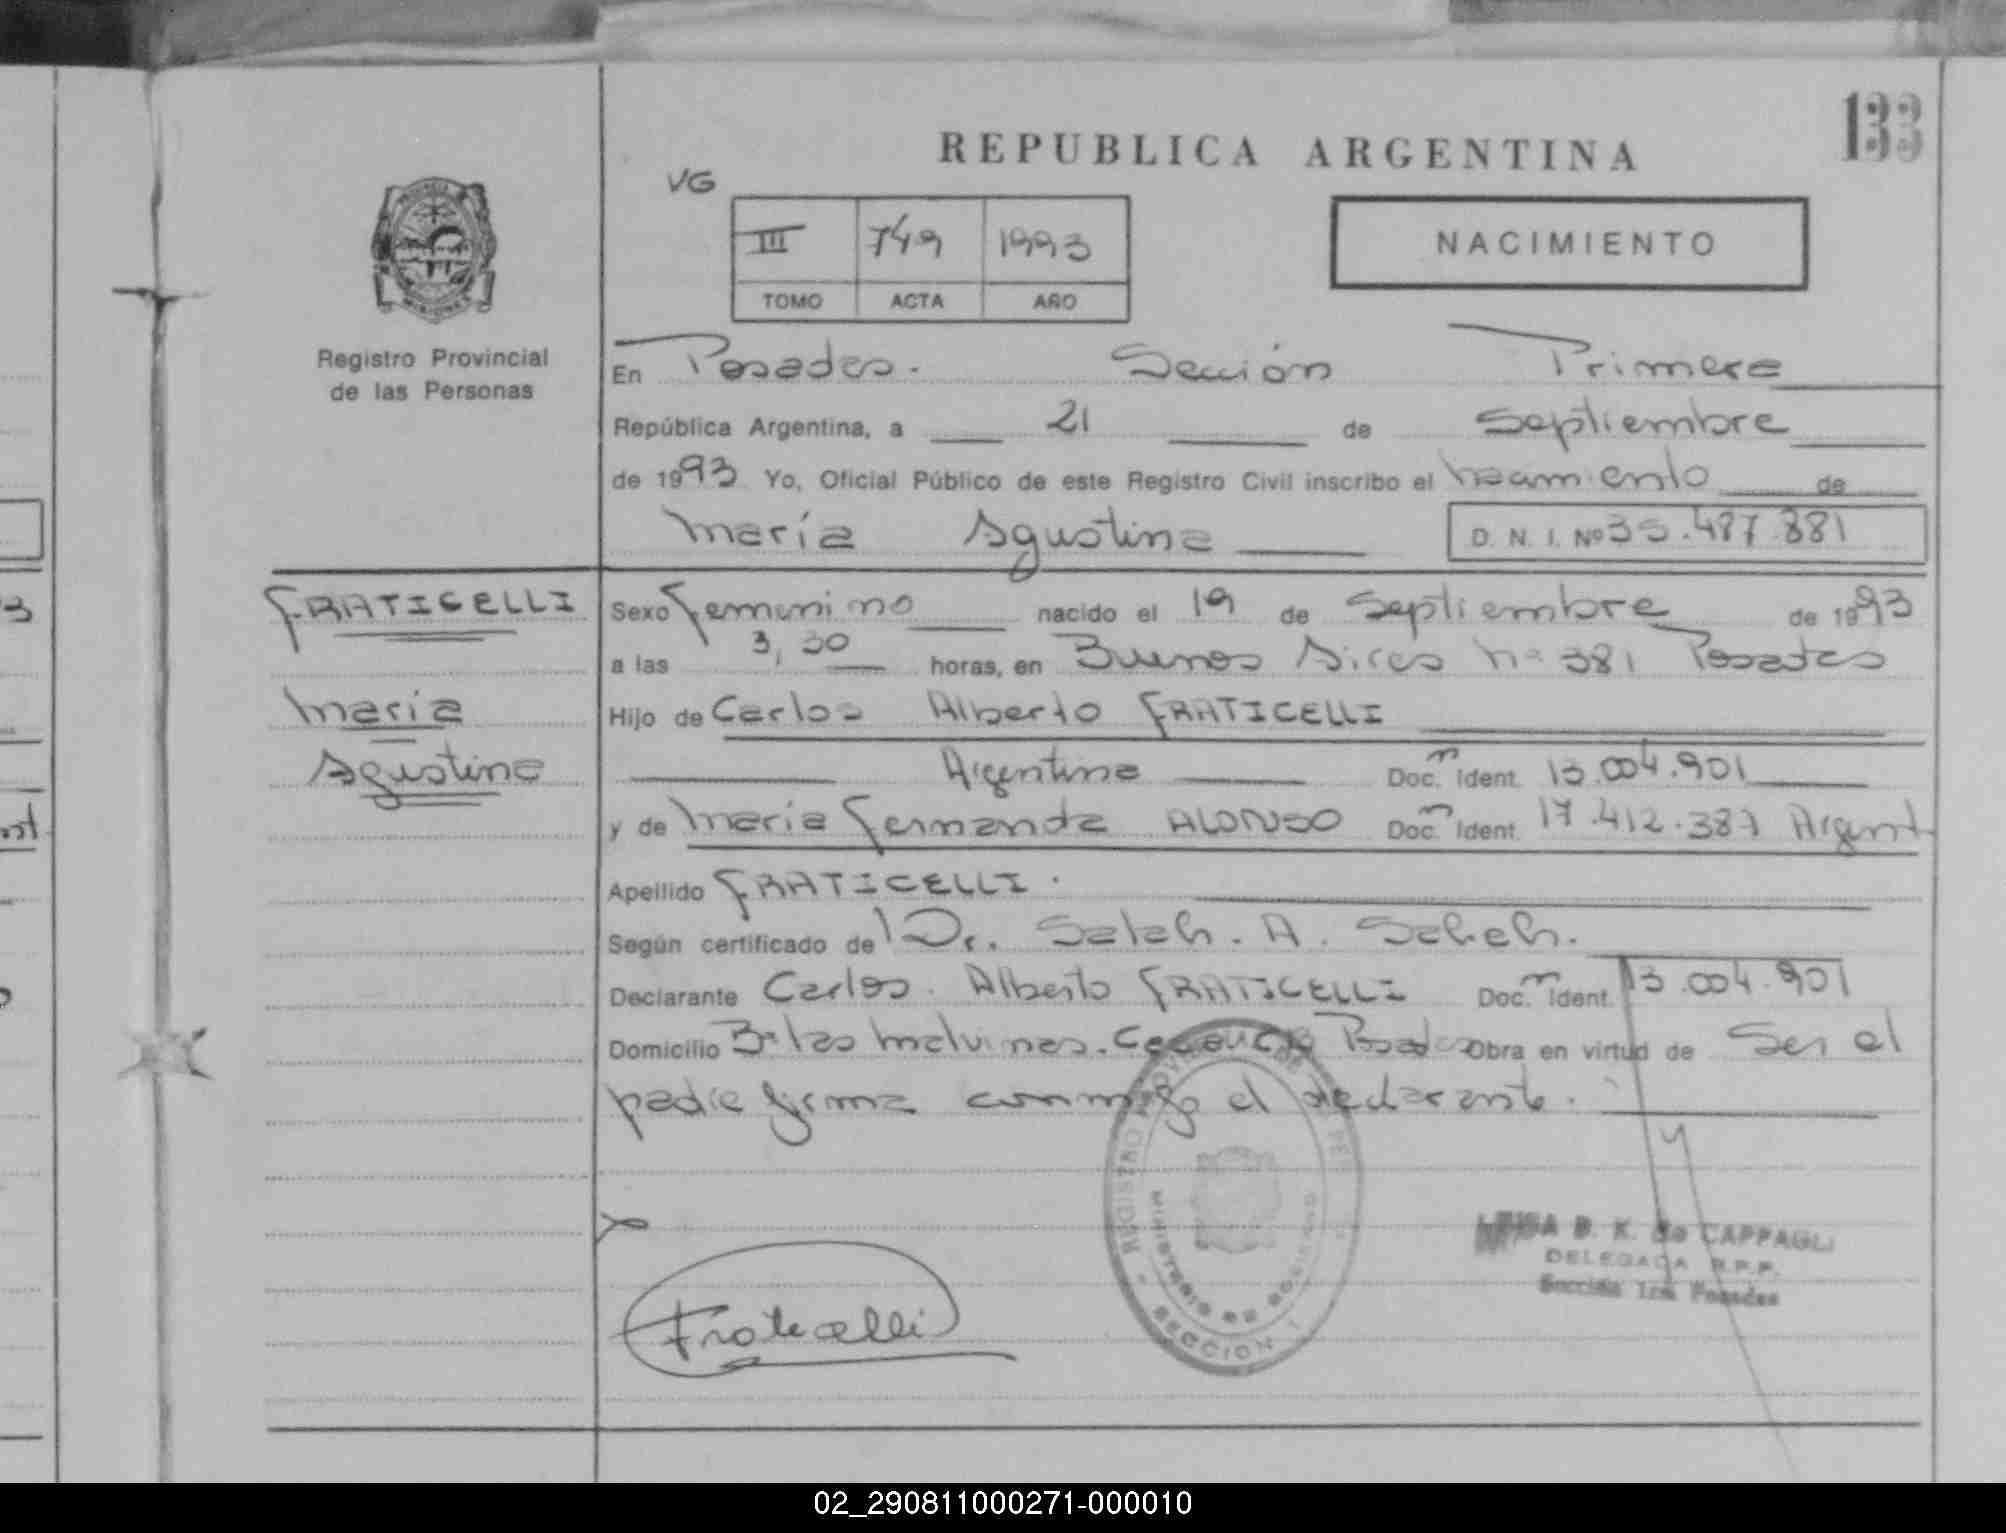 133
REPUBLICA ARGENTINA
VG
III 749 1993
TOMO ACTA AÑO
NACIMIENTO
MISIONES
Registro Provincial
de las Personas
En Posadas. Sección Primera
República Argentina, a 21 de Septiembre
de 1993 Yo, Oficial Público de este Registro Civil inscribo el nacimiento de
María Agustina D. N. I. Nº 35.487.881
FRATICELLI
María
Agustina
Sexo femenino nacido el 19 de Septiembre de 1993
a las 3,30 horas, en Buenos Aires nº 381 Posadas
Hijo de Carlos Alberto FRATICELLI
Argentina Doc. m Ident. 13.004.901
y de María Fernanda ALONSO Doc. m Ident. 17.412.387 Argent.
Apellido FRATICELLI.
Según certificado de Dr. Salah. A. Saheh.
Declarante Carlos Alberto FRATICELLI Doc. m Ident. 13.004.901
Domicilio Bº las Malvinas. Posadas Obra en virtud de Ser el
padre firma conmigo el declarante.
REGISTRO PROVINCIAL DE LAS PER
MINISTERIO DE GOBIERNO
SECCION 1
B. K. de CAPPAGLI
DELEGADA R.P.P.
Sección 1ra Posadas
Fraticelli
02_290811000271-000010